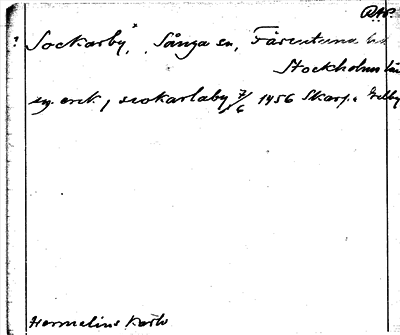 RAP.
? Sockarby, Sånga sn, Färentuna hd
Stockholms län
sockarlaby 7/6 1456 Skarp.
Hermelins karta